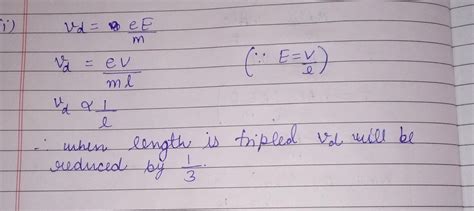 i) vd = eE/m
vd = eV/ml (∵ E = V/l)
vd ∝ 1/l
∴ when length is tripled vd will be
reduced by 1/3.